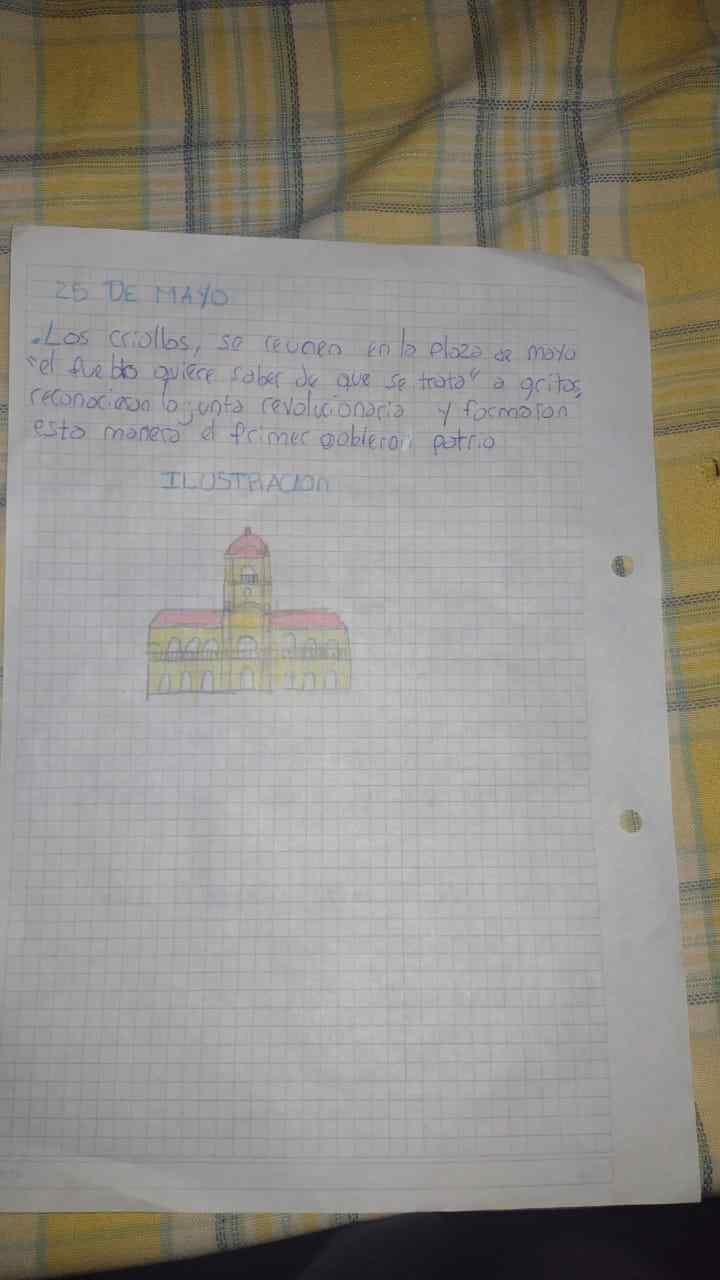 25 DE MAYO
. Los criollos, se reunen en la plaza de mayo
"el pueblo quiere saber de que se trata" a gritos,
reconocieron la junta revolucionaria y formaron
esta manera el primer gobierno patrio
ILUSTRACION